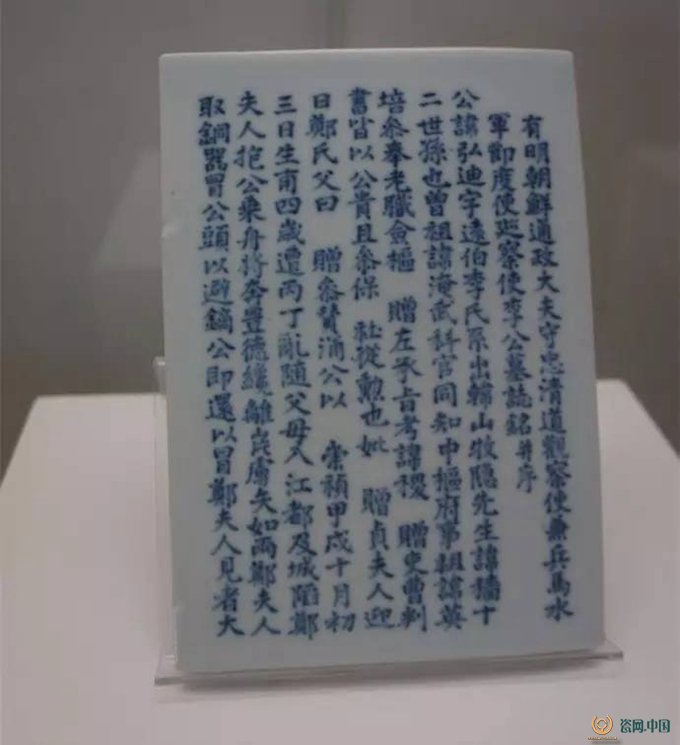 有明朝鮮通政大夫守忠清道觀察使兼兵馬水
軍節度使巡察使李公墓誌銘并序
公諱弘迪字遠伯李氏系出韓山牧隱先生諱穡十
二世孫也曾祖諱海武科官同知中樞府事祖諱英
培參奉老職僉樞 贈左承旨考諱稷 贈吏曹判
書皆以公貴且參保 社從勳也妣 贈貞夫人迎
日鄭氏父曰 贈參贊涌公以 崇禎甲戌十月初
三日生甫四歲遭丙丁亂隨父母入江都及城陷鄭
夫人抱公乘舟將奔豊德纔離岸虜矢如雨鄭夫人
取銅器冒公頭以避鏑公即還以冒鄭夫人見者大
瓷网.中国